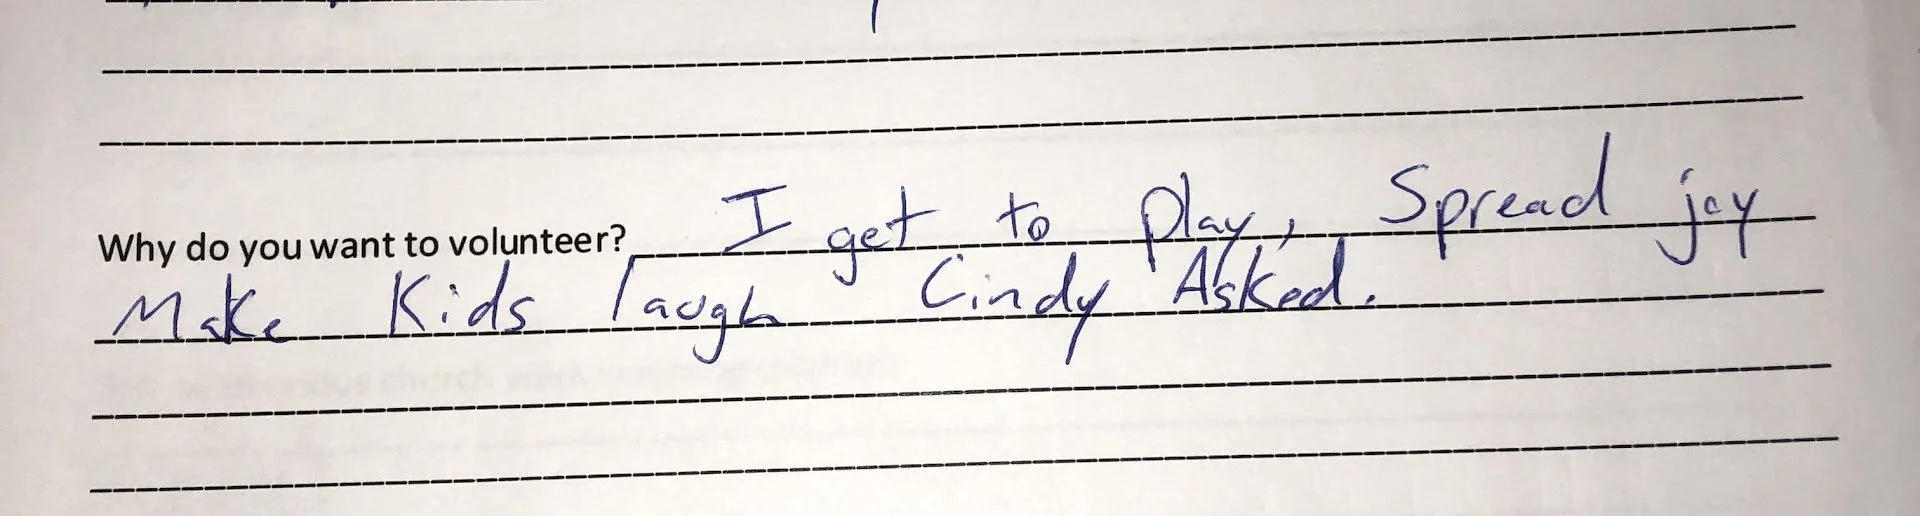 Why do you want to volunteer? I get to play, Spread joy
Make Kids laugh Cindy Asked.